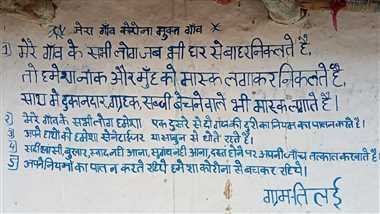 मेरा गाँव कोरोना मुक्त गाँव
1) मेरे गाँव के सभी लोग जब भी घर से बाहर निकलते है.
तो हमेशा नाक और मुँह को मास्क लगाकर निकलते हैं.
साथ मे दुकानदार, ग्राहक, सब्जी बेचने वाले भी मास्क लगाते हैं।
2) मेरे गाँव के सभी लोग हमेशा एक दुसरे से दो गज की दूरी का नियम का पालन करते है।
3) अपने हाथों को हमेशा सैनेटाईजर या साबुन से धोते रहते है।
4) सर्दी खासी, बुखार, स्वाद नही आना, सुगंध नही आना, दस्त होने पर अपनी जाँच तत्काल करवाते है।
5) अपने नियमो का पालन करते रहिये हमेशा कोरोना से बचकर रहिये।
ग्राम-तिलई